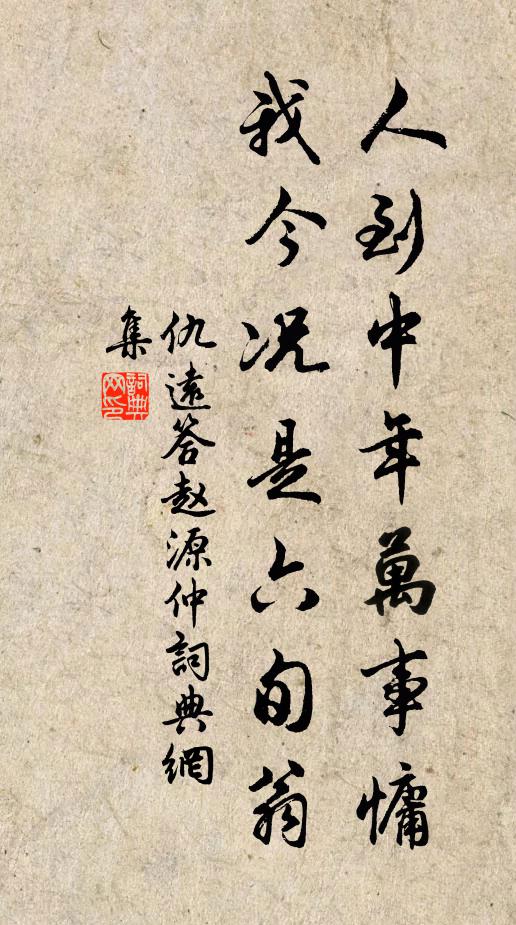 人到中年萬事慵
我今况是六旬翁
仇遠答赵源仲詞典網
集
詞典
网印